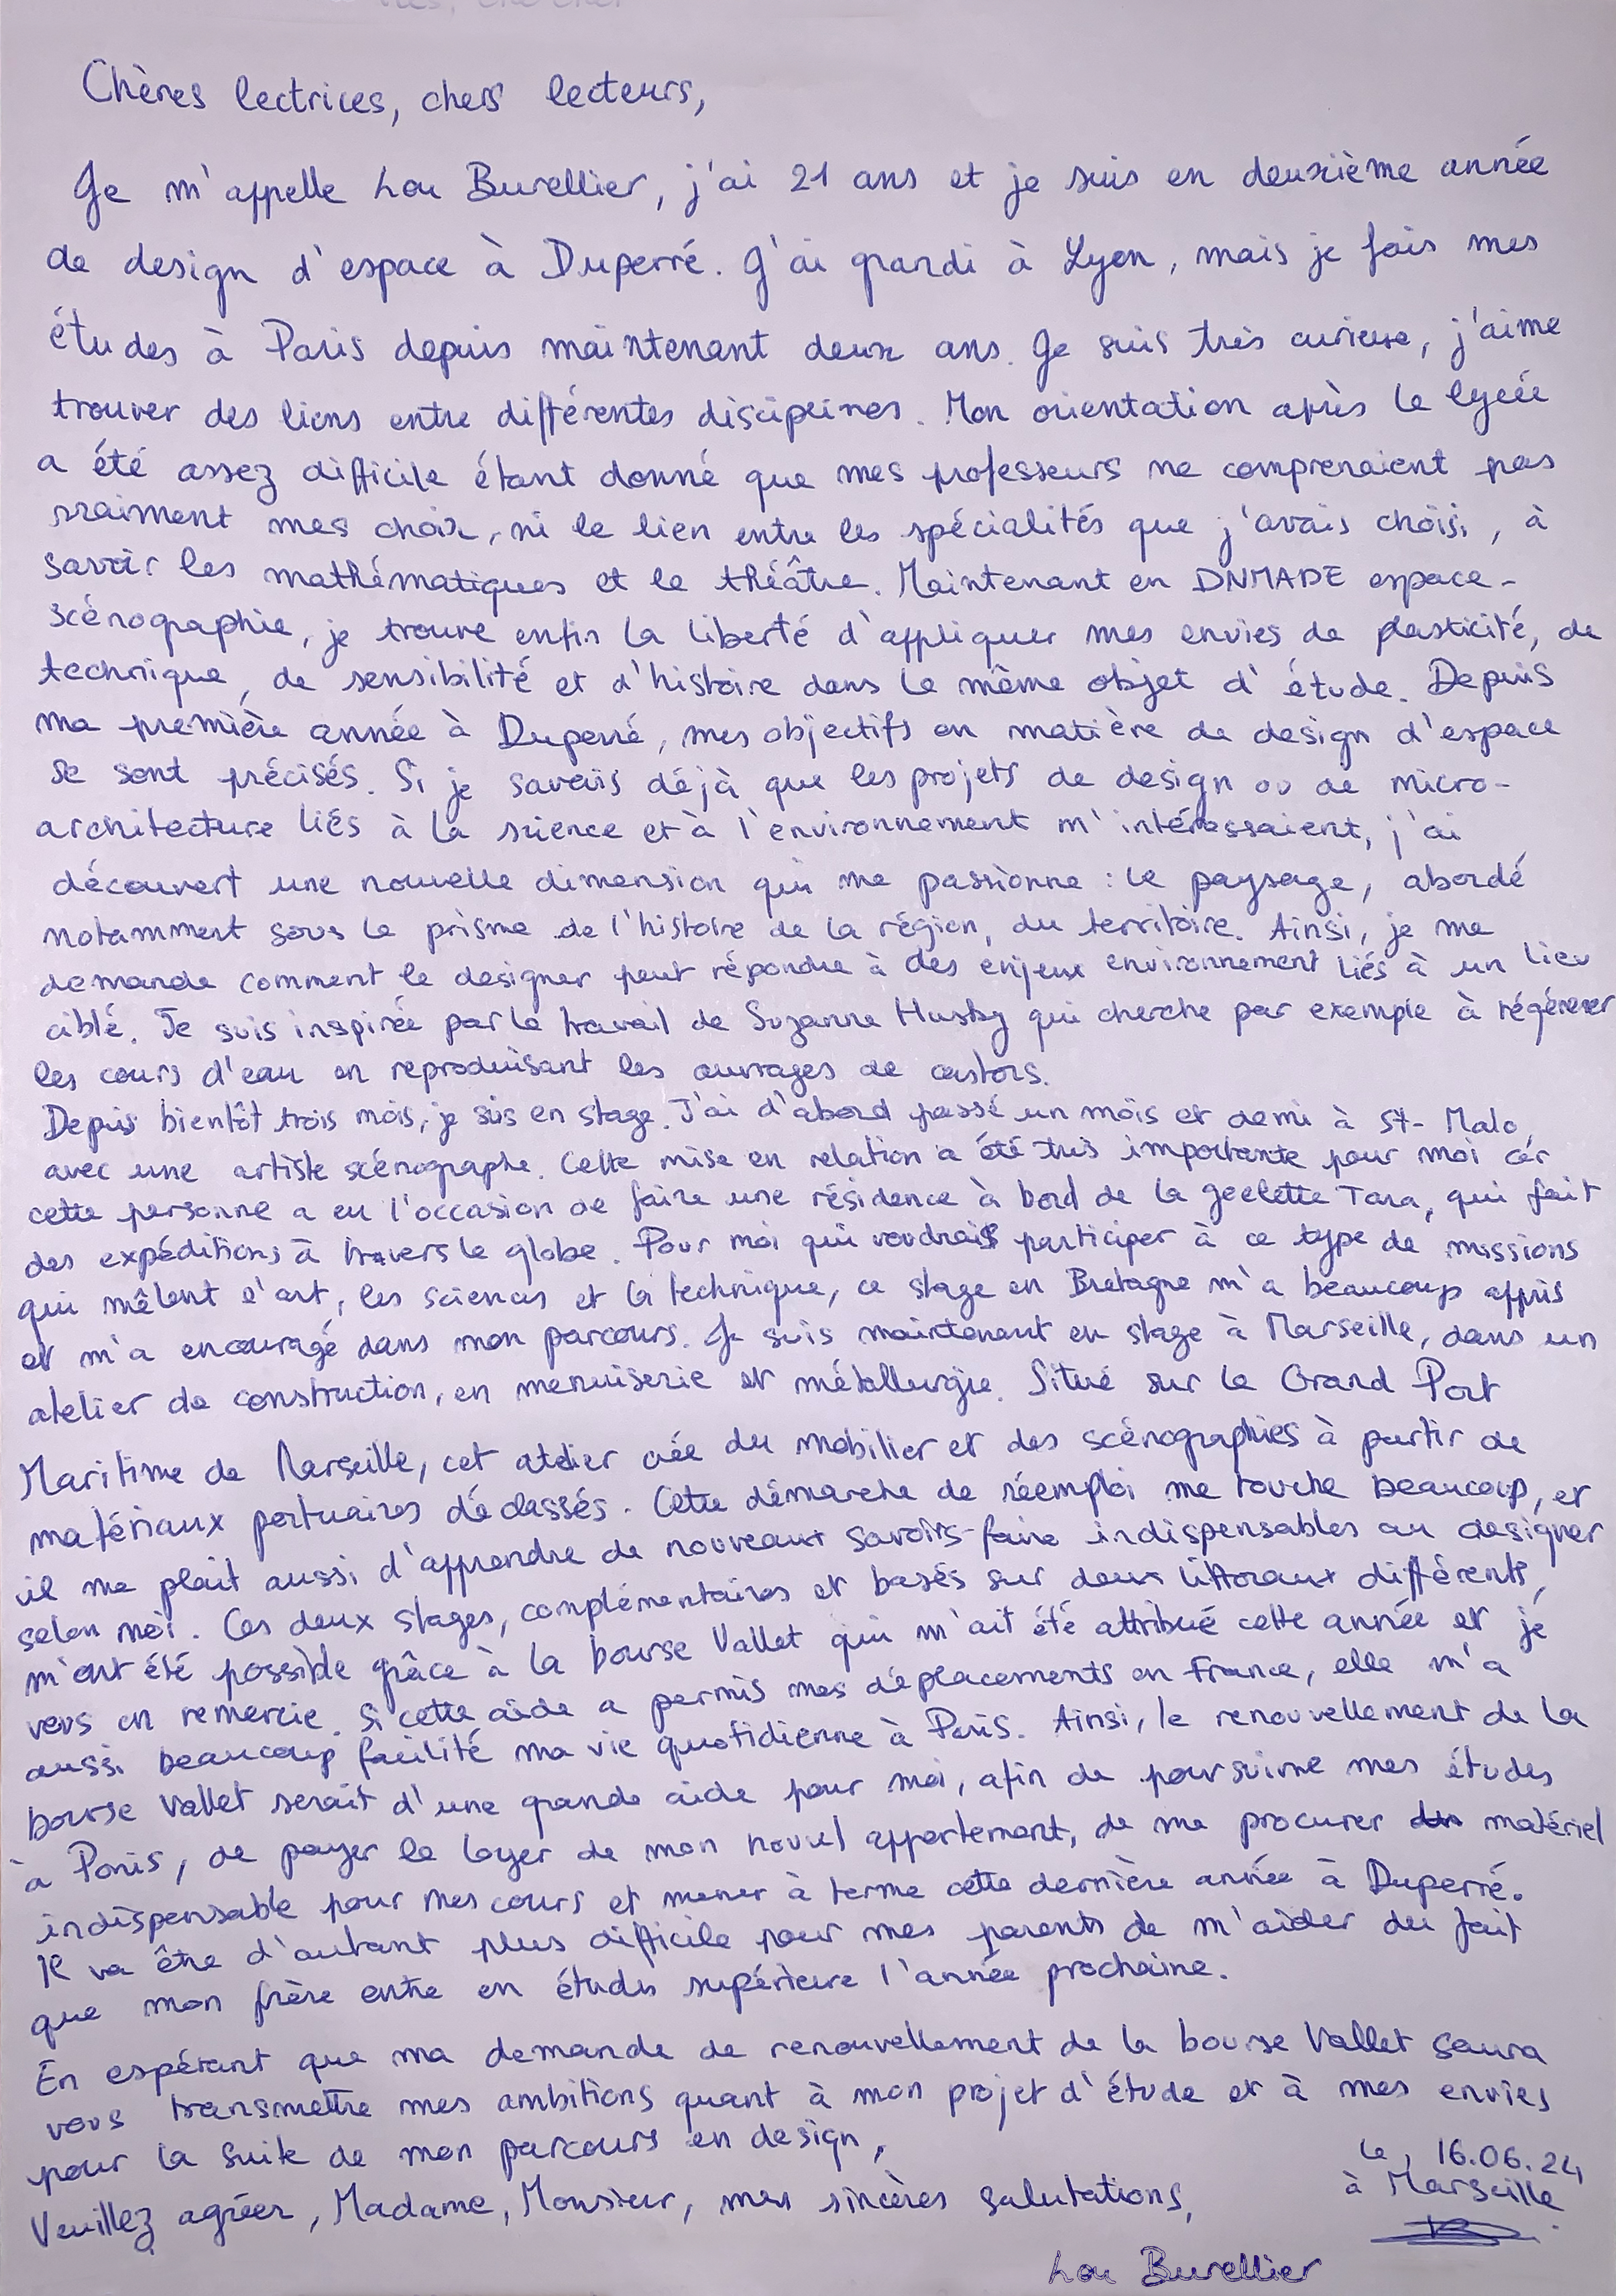 Chères lectrices, chers lecteurs,
Je m'appelle Lou Burellier, j'ai 21 ans et je suis en deuxième année
de design d'espace à Duperré. J'ai grandi à Lyon, mais je fais mes
études à Paris depuis maintenant deux ans. Je suis très curieuse, j'aime
trouver des liens entre différentes disciplines. Mon orientation après le lycée
a été assez difficile étant donné que mes professeurs ne comprenaient pas
vraiment mes choix, ni le lien entre les spécialités que j'avais choisi, à
savoir les mathématiques et le théâtre. Maintenant en DNMADE espace-
scénographie, je trouve enfin la liberté d'appliquer mes envies de plasticité, de
technique, de sensibilité et d'histoire dans le même objet d'étude. Depuis
ma première année à Duperré, mes objectifs en matière de design d'espace
se sont précisés. Si je savais déjà que les projets de design ou de micro-
architecture liés à la science et à l'environnement m'intéressaient, j'ai
découvert une nouvelle dimension qui me passionne : le paysage, abordé
notamment sous le prisme de l'histoire de la région, du territoire. Ainsi, je me
demande comment le designer peut répondre à des enjeux environnement liés à un lieu
ciblé. Je suis inspirée par le travail de Suzanne Husky qui cherche par exemple à régénérer
les cours d'eau en reproduisant les ouvrages de castors.
Depuis bientôt trois mois, je suis en stage. J'ai d'abord passé un mois et demi à St-Malo
avec une artiste scénographe. Cette mise en relation a été très importante pour moi car
cette personne a eu l'occasion de faire une résidence à bord de la goélette Tara, qui fait
des expéditions à travers le globe. Pour moi qui voudrais participer à ce type de missions
qui mêlent l'art, les sciences et la technique, ce stage en Bretagne m'a beaucoup appris
et m'a encouragé dans mon parcours. Je suis maintenant en stage à Marseille, dans un
atelier de construction, en menuiserie et métallurgie. Situé sur le Grand Port
Maritime de Marseille, cet atelier crée du mobilier et des scénographies à partir de
matériaux portuaires déclassés. Cette démarche de réemploi me touche beaucoup, et
il me plait aussi d'apprendre de nouveaux savoirs-faire indispensables au designer
selon moi. Ces deux stages, complémentaires et basés sur deux littoraux différents,
m'ont été possible grâce à la bourse Vallet qui m'ait été attribué cette année et je
vous en remercie. Si cette aide a permis mes déplacements en France, elle m'a
aussi beaucoup facilité ma vie quotidienne à Paris. Ainsi, le renouvellement de la
bourse Vallet serait d'une grande aide pour moi, afin de poursuivre mes études
à Paris, de payer le loyer de mon nouvel appartement, de me procurer matériel
indispensable pour mes cours et mener à terme cette dernière année à Duperré.
Il va être d'autant plus difficile pour mes parents de m'aider du fait
que mon frère entre en études supérieure l'année prochaine.
En espérant que ma demande de renouvellement de la bourse Vallet saura
vous transmettre mes ambitions quant à mon projet d'étude et à mes envies
pour la suite de mon parcours en design,
Veuillez agréer, Madame, Monsieur, mes sincères salutations,
Le, 16.06.24
à Marseille.
Lou Burellier